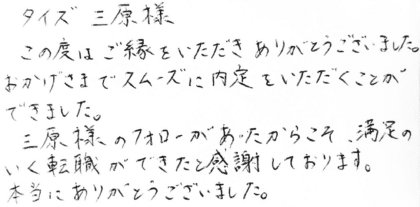 タイズ 三原様
この度はご縁をいただきありがとうございました。
おかげさまでスムーズに内定をいただくことが
できました。
三原様のフォローがあったからこそ、満足の
いく転職ができたと感謝しております。
本当にありがとうございました。